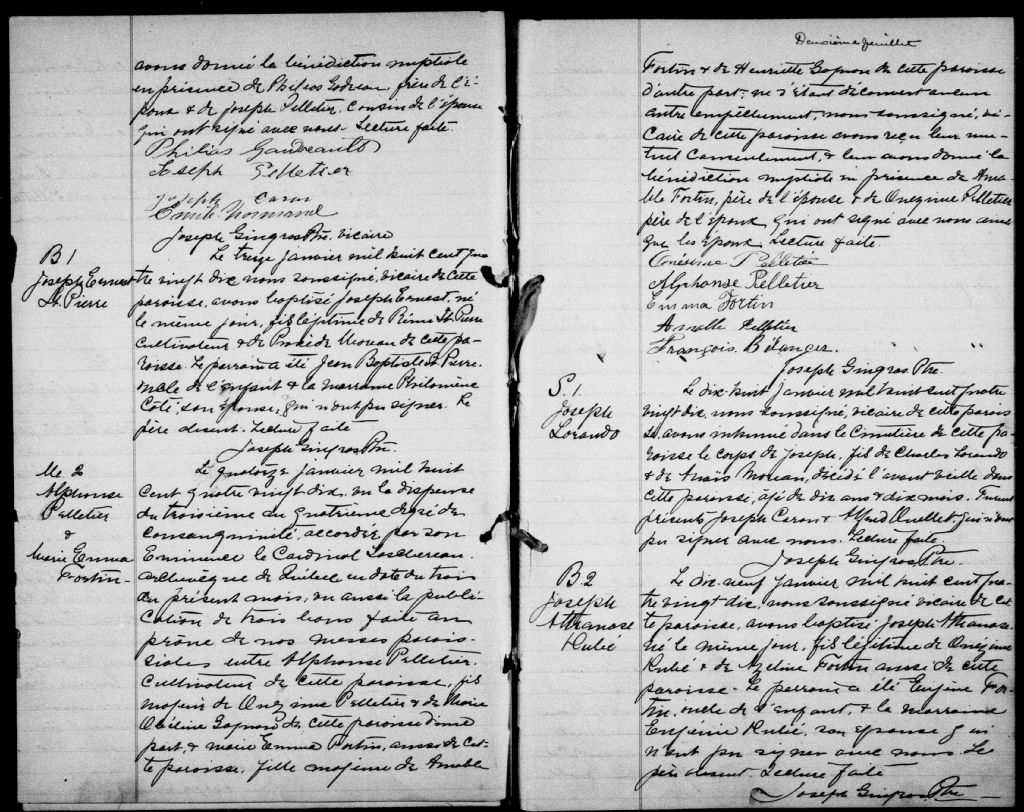 avons donné la bénédiction nuptiale
en présence de Philias Godreau, frère de l'é-
poux & de Joseph Pelletier, cousin de l'épouse
qui ont signé avec nous. Lecture faite.
Philias Gaudreault
Joseph Pelletier
Joseph Caron
Emile Normand
Joseph Gingras Ptre. vicaire
B 1
Joseph Ernest
St. Pierre
Le treize janvier mil huit cent qua
tre vingt dix nous soussigné, vicaire de cette
paroisse, avons baptisé Joseph Ernest, né
le même jour, fils légitime de Rémi St. Pierre
cultivateur & de Moreau de cette pa-
roisse. Le parrain a été Jean Baptiste St. Pierre
oncle de l'enfant & la marraine Philomène
Côté, son épouse, qui n'ont pu signer. Le
père absent. Lecture faite
Joseph Gingras Ptre.
M. 2
Alphonse
Pelletier
&
Marie Emma
Fortin
Le quatorze janvier mil huit
cent quatre vingt dix, vu la dispense
du troisième au quatrième degré de
consanguinité, accordée par son
Eminence le Cardinal Taschereau
archevêque de Québec en date du trois
du présent mois; vu aussi la publi-
cation de trois bans faite au
prône de nos messes parois-
siales entre Alphonse Pelletier,
cultivateur de cette paroisse, fils
majeur de Onezime Pelletier & de Marie
Gagnon de cette paroisse d'une
part, & Marie Emma Fortin, aussi de cet-
te paroisse, fille majeure de Amable
Deuxième feuillet
Fortin & de Henriette Gagnon de cette paroisse
d'autre part; ne s'étant découvert aucun
autre empêchement, nous soussigné, vi-
caire de cette paroisse avons reçu leur mu-
tuel consentement, & leur avons donné la
bénédiction nuptiale en présence de Ama-
ble Fortin, père de l'épouse & de Onezime Pelletier
père de l'époux qui ont signé avec nous ainsi
que les époux. Lecture faite.
Onésime Pelletier
Alphonse Pelletier
Emma Fortin
Pelletier
François Bélanger
Joseph Gingras Ptre.
S. 1.
Joseph
Lorando
Le dix-huit janvier mil huit cent quatre
vingt dix, nous soussigné, vicaire de cette parois
se avons inhumé dans le cimetière de cette pa-
roisse le corps de Joseph, fils de Charles Lorando
& de Anaïs Moreau, décédé l'avant veille dans
cette paroisse, agé de dix ans & dix mois. Furent
présents Joseph Caron & Alfred Ouellet, qui n'ont
pu signer avec nous. Lecture faite.
Joseph Gingras Ptre.
B. 2
Joseph
Athanase
Dubé
Le dix-neuf janvier mil huit cent qua-
tre vingt dix, nous soussigné vicaire de cet-
te paroisse, avons baptisé Joseph Athanase
né le même jour, fils légitime de Onézime
Dubé & de Azeline Fortin aussi de cette
paroisse. Le parrain a été Eugène For-
tin, oncle de l'enfant, & la marraine
Eugénie Dubé, son épouse qui
n'ont pu signer avec nous. Le
père absent. Lecture faite
Joseph Gingras Ptre